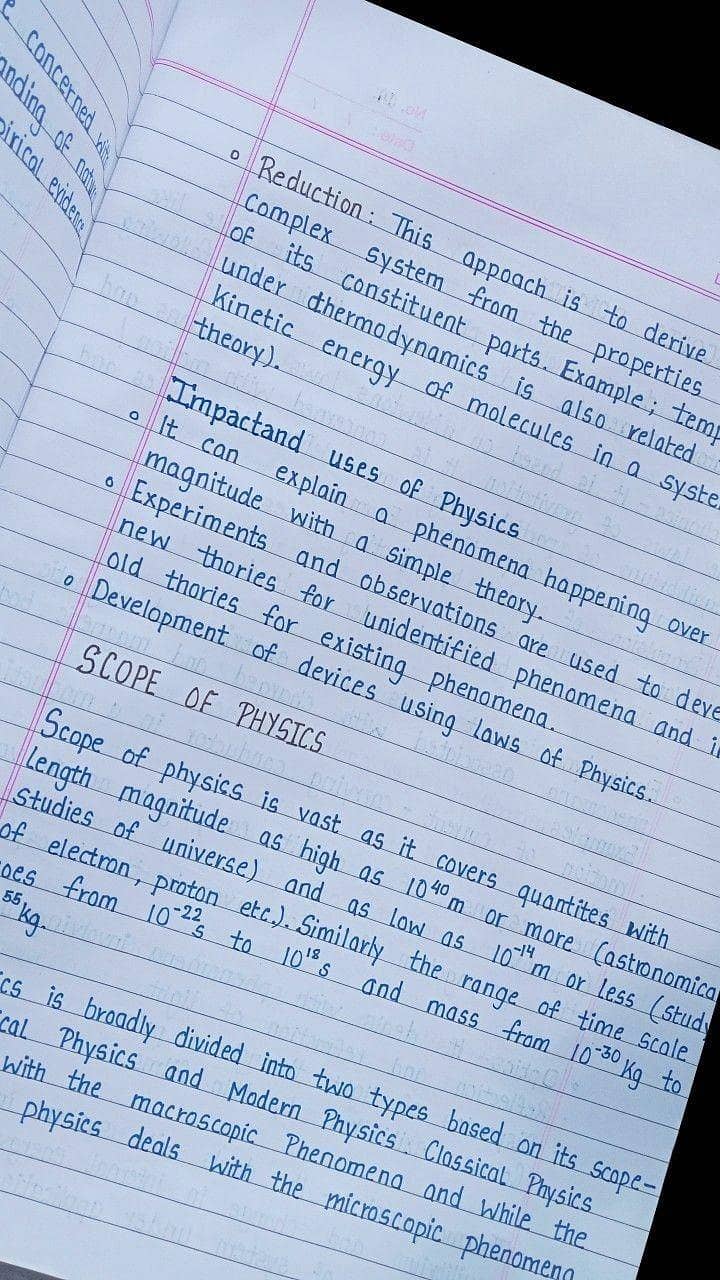 e concerned with
anding of natu
pirical evidence
Reduction: This appoach is to derive
Complex system from the properties
of its constituent parts. Example; temp
under thermodynamics is also related
kinetic energy of molecules in a syste
theory).
Impactand uses of Physics
It can explain a phenomena happening over
magnitude with a simple theory.
Experiments and observations are used to deve
new thories for unidentified phenomena and i
old thories for existing phenomena.
Development of devices using laws of Physics.
SCOPE OF PHYSICS
Scope of physics is vast as it covers quantites with
length magnitude as high as 10⁴⁰m or more (astronomica
studies of universe) and as low as 10⁻¹⁴m or less (study
of electron, proton etc.). Similarly the range of time scale
oes from 10⁻²²s to 10¹⁸s and mass from 10⁻³⁰kg to
⁵⁵kg.
ics is broadly divided into two types based on its scope-
ical Physics and Modern Physics. Classical Physics
with the macroscopic Phenomena and while the
physics deals with the microscopic phenomena